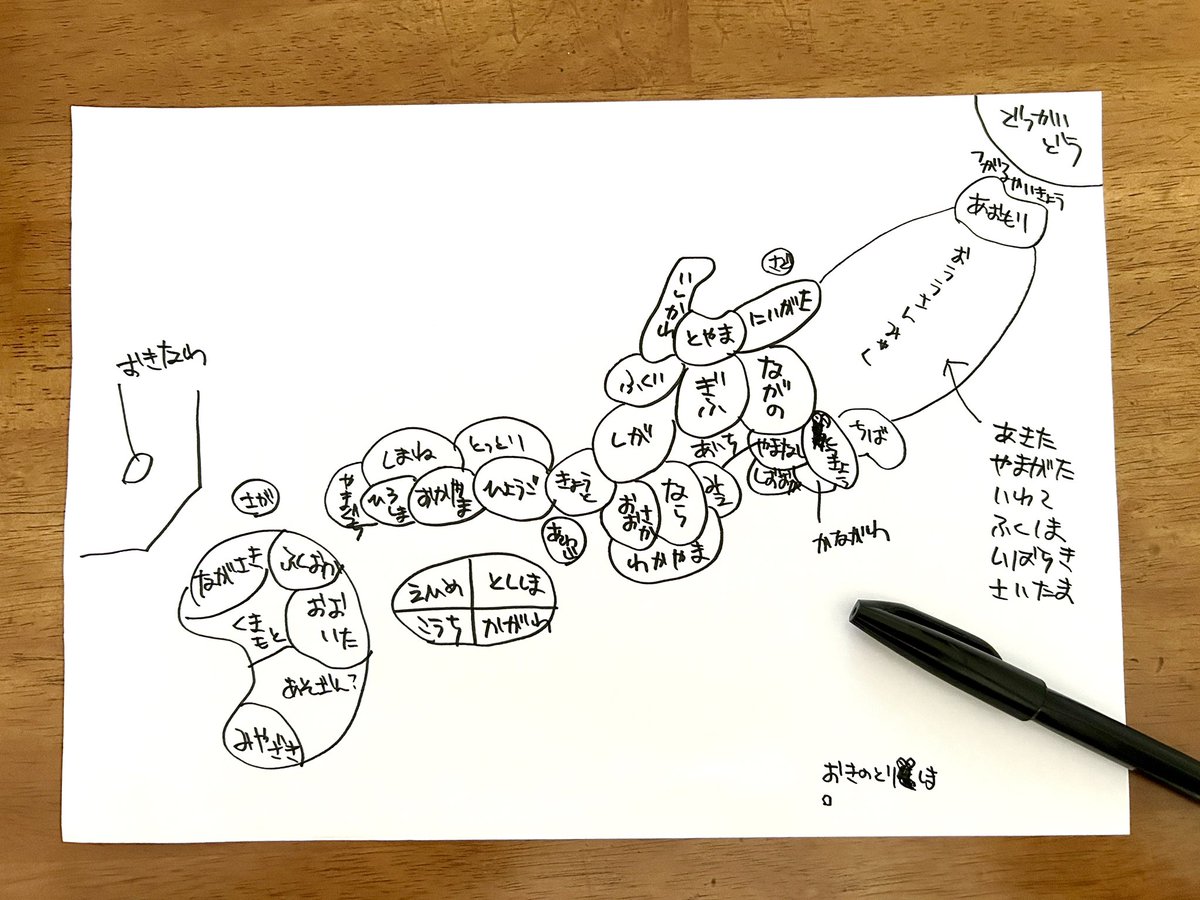 どっかい
どう
つがるかいきょう
あおもり
さど
いしかわ
とやま
にいがた
ふくい
ぎふ
ながの
しが
あいち
やまなし
ちば
とうきょう
しずおか
かながわ
みえ
なら
おお
さか
わかやま
きょうと
あわじ
とっとり
ひょうご
しまね
おかやま
ひろ
しま
やまぐち
えひめ
とくしま
こうち
かがわ
おきなわ
さが
ながさき
ふくおか
くま
もと
おお
いた
あそざん?
みやざき
あきた
やまがた
いわて
ふくしま
いばらき
さいたま